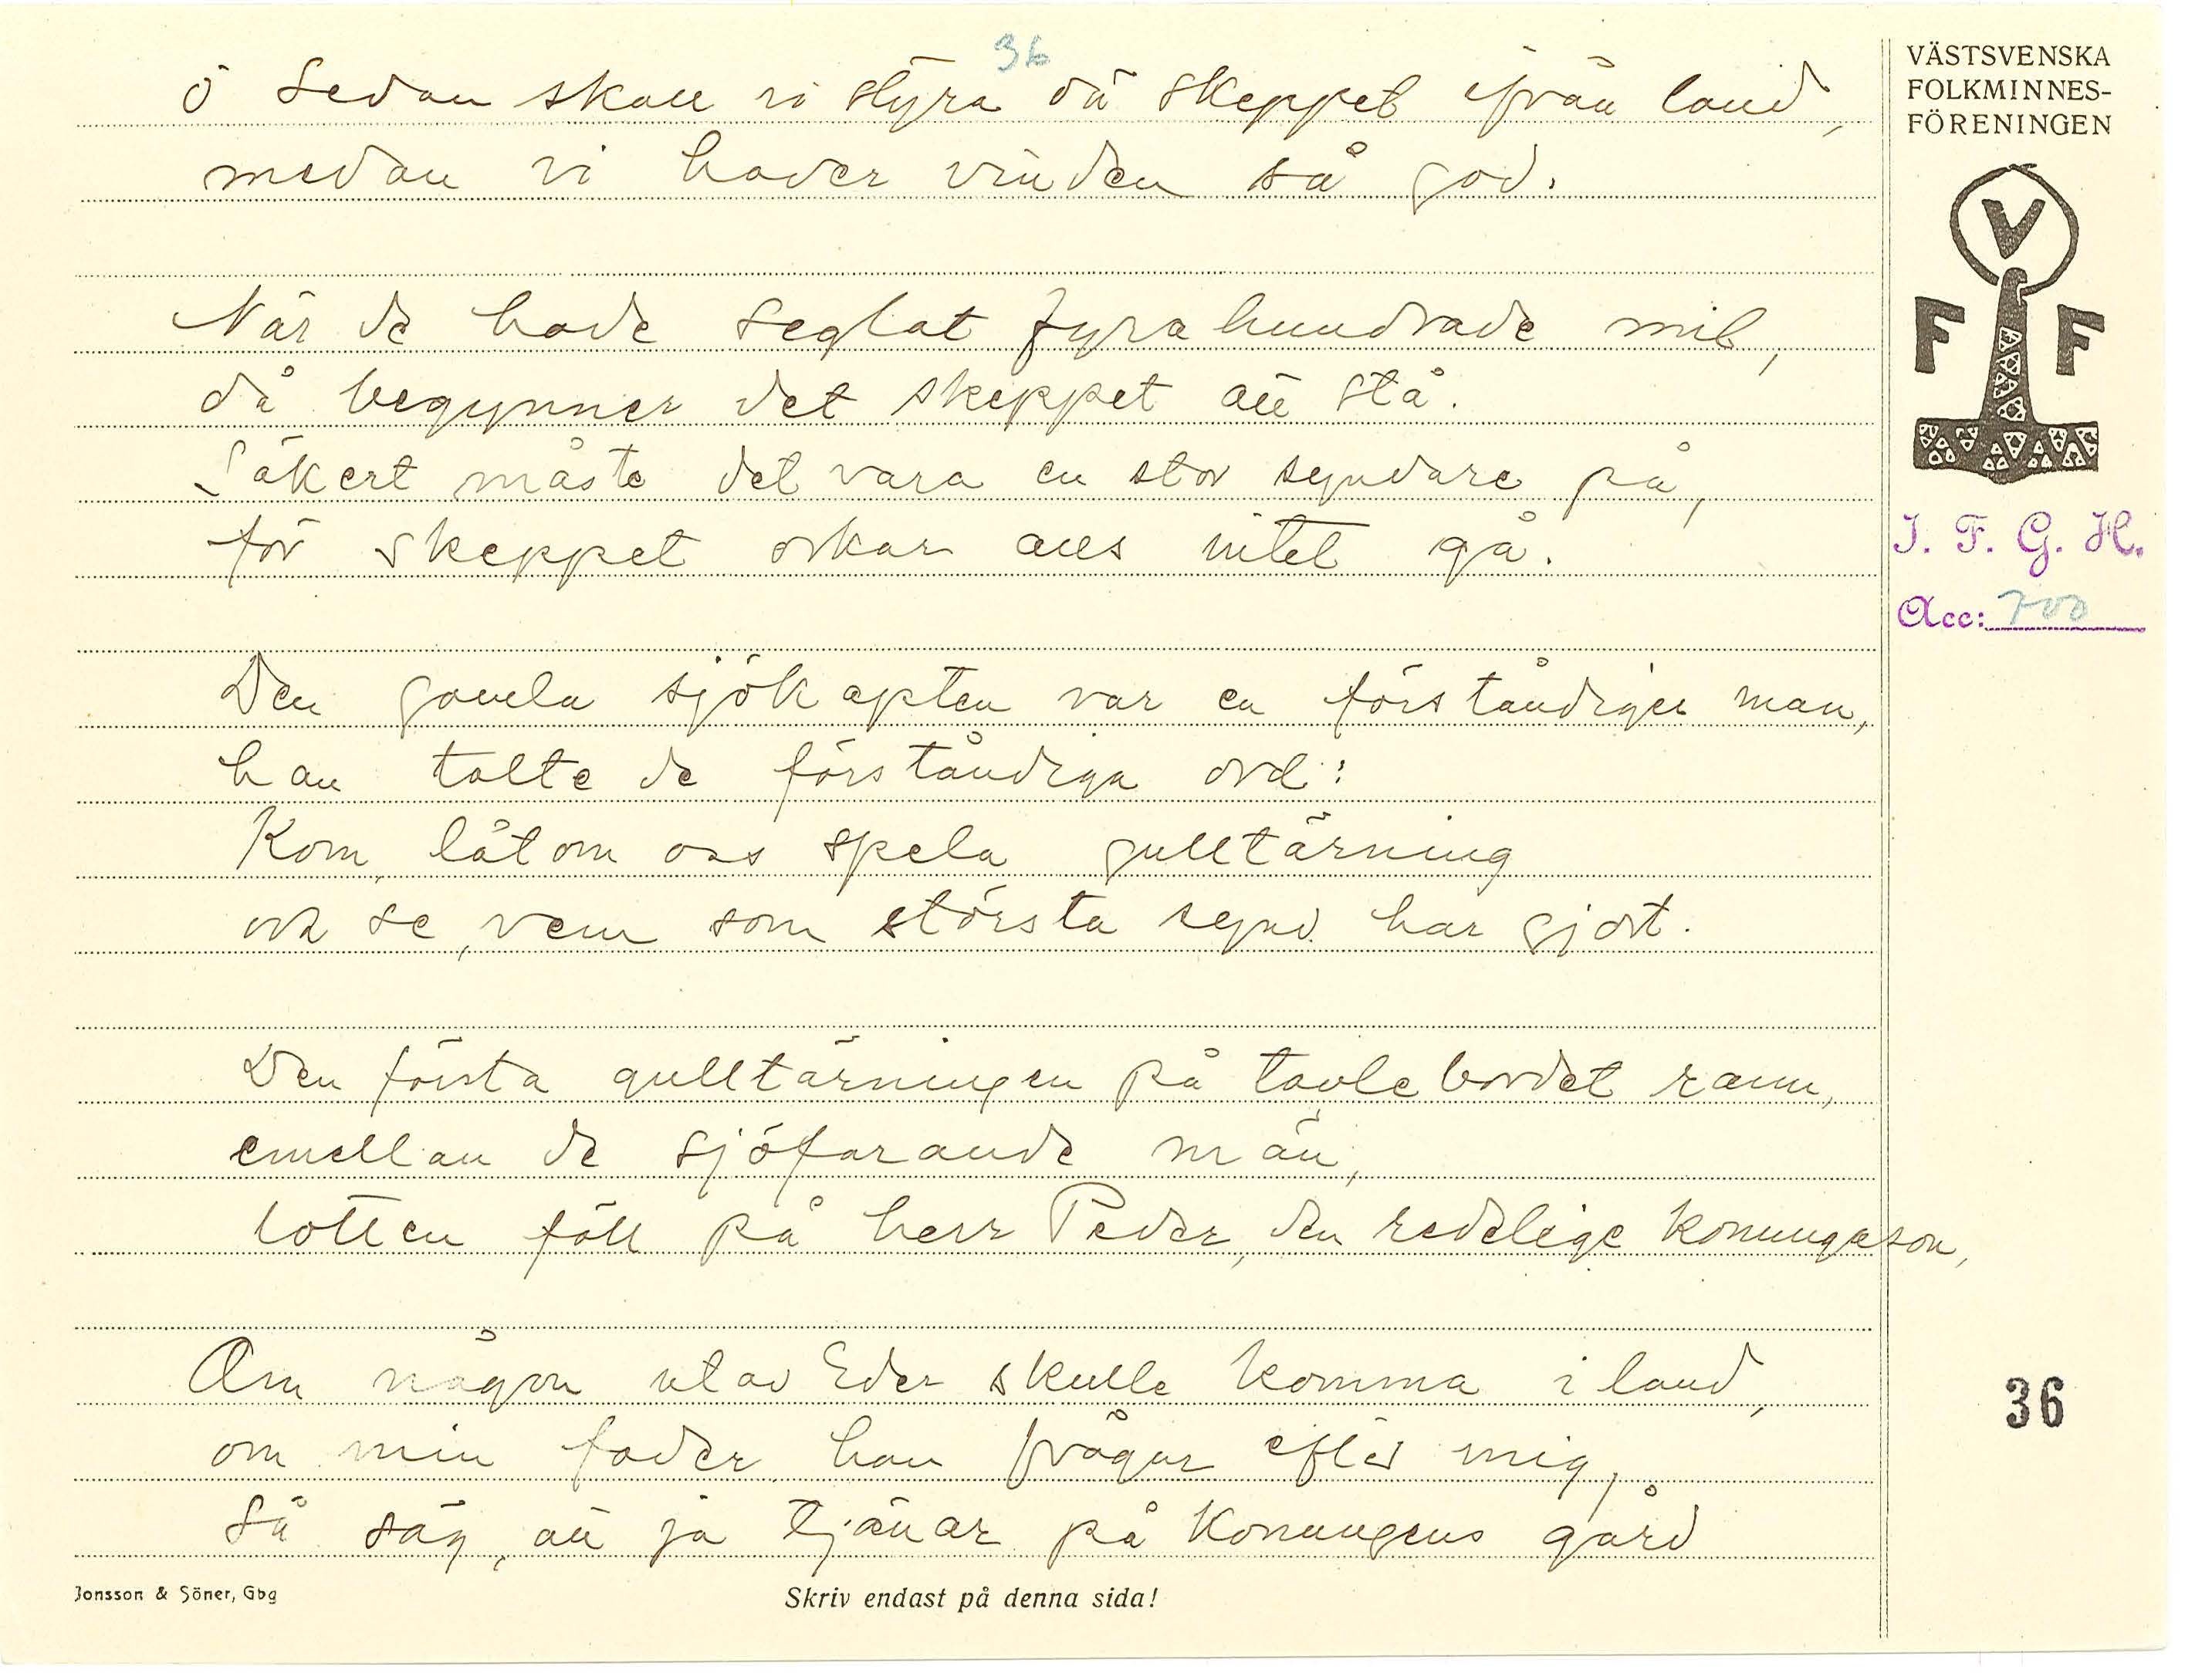 36
ö Sedan skall vi styra då skeppet ifrån land,
medan vi haver vinden så god.
När de hade seglat fyrahundrade mil,
då begynner det skeppet att stå.
Säkert måste det vara en stor syndare på,
för skeppet orkar alls intet gå.
Den gamla sjökapten var en förståndiger man,
han talte de förståndiga ord:
Kom, låtom oss spela gulltärning
och se, vem som största synd har gjort.
Den första gulltärningen på tavlebordet rann,
emellan de sjöfarande män,
lotten föll på herr Peder, den redelige konungason,
Om någon utav Eder skulle komma i land,
om min fader han frågar efter mig,
Så säg, att ja tjänar på Konungens gård
Jonsson & Söner, Gbg
Skriv endast på denna sida!
VÄSTSVENSKA
FOLKMINNES-
FÖRENINGEN
V
F F
I. F. G. H.
Acc: 700
36